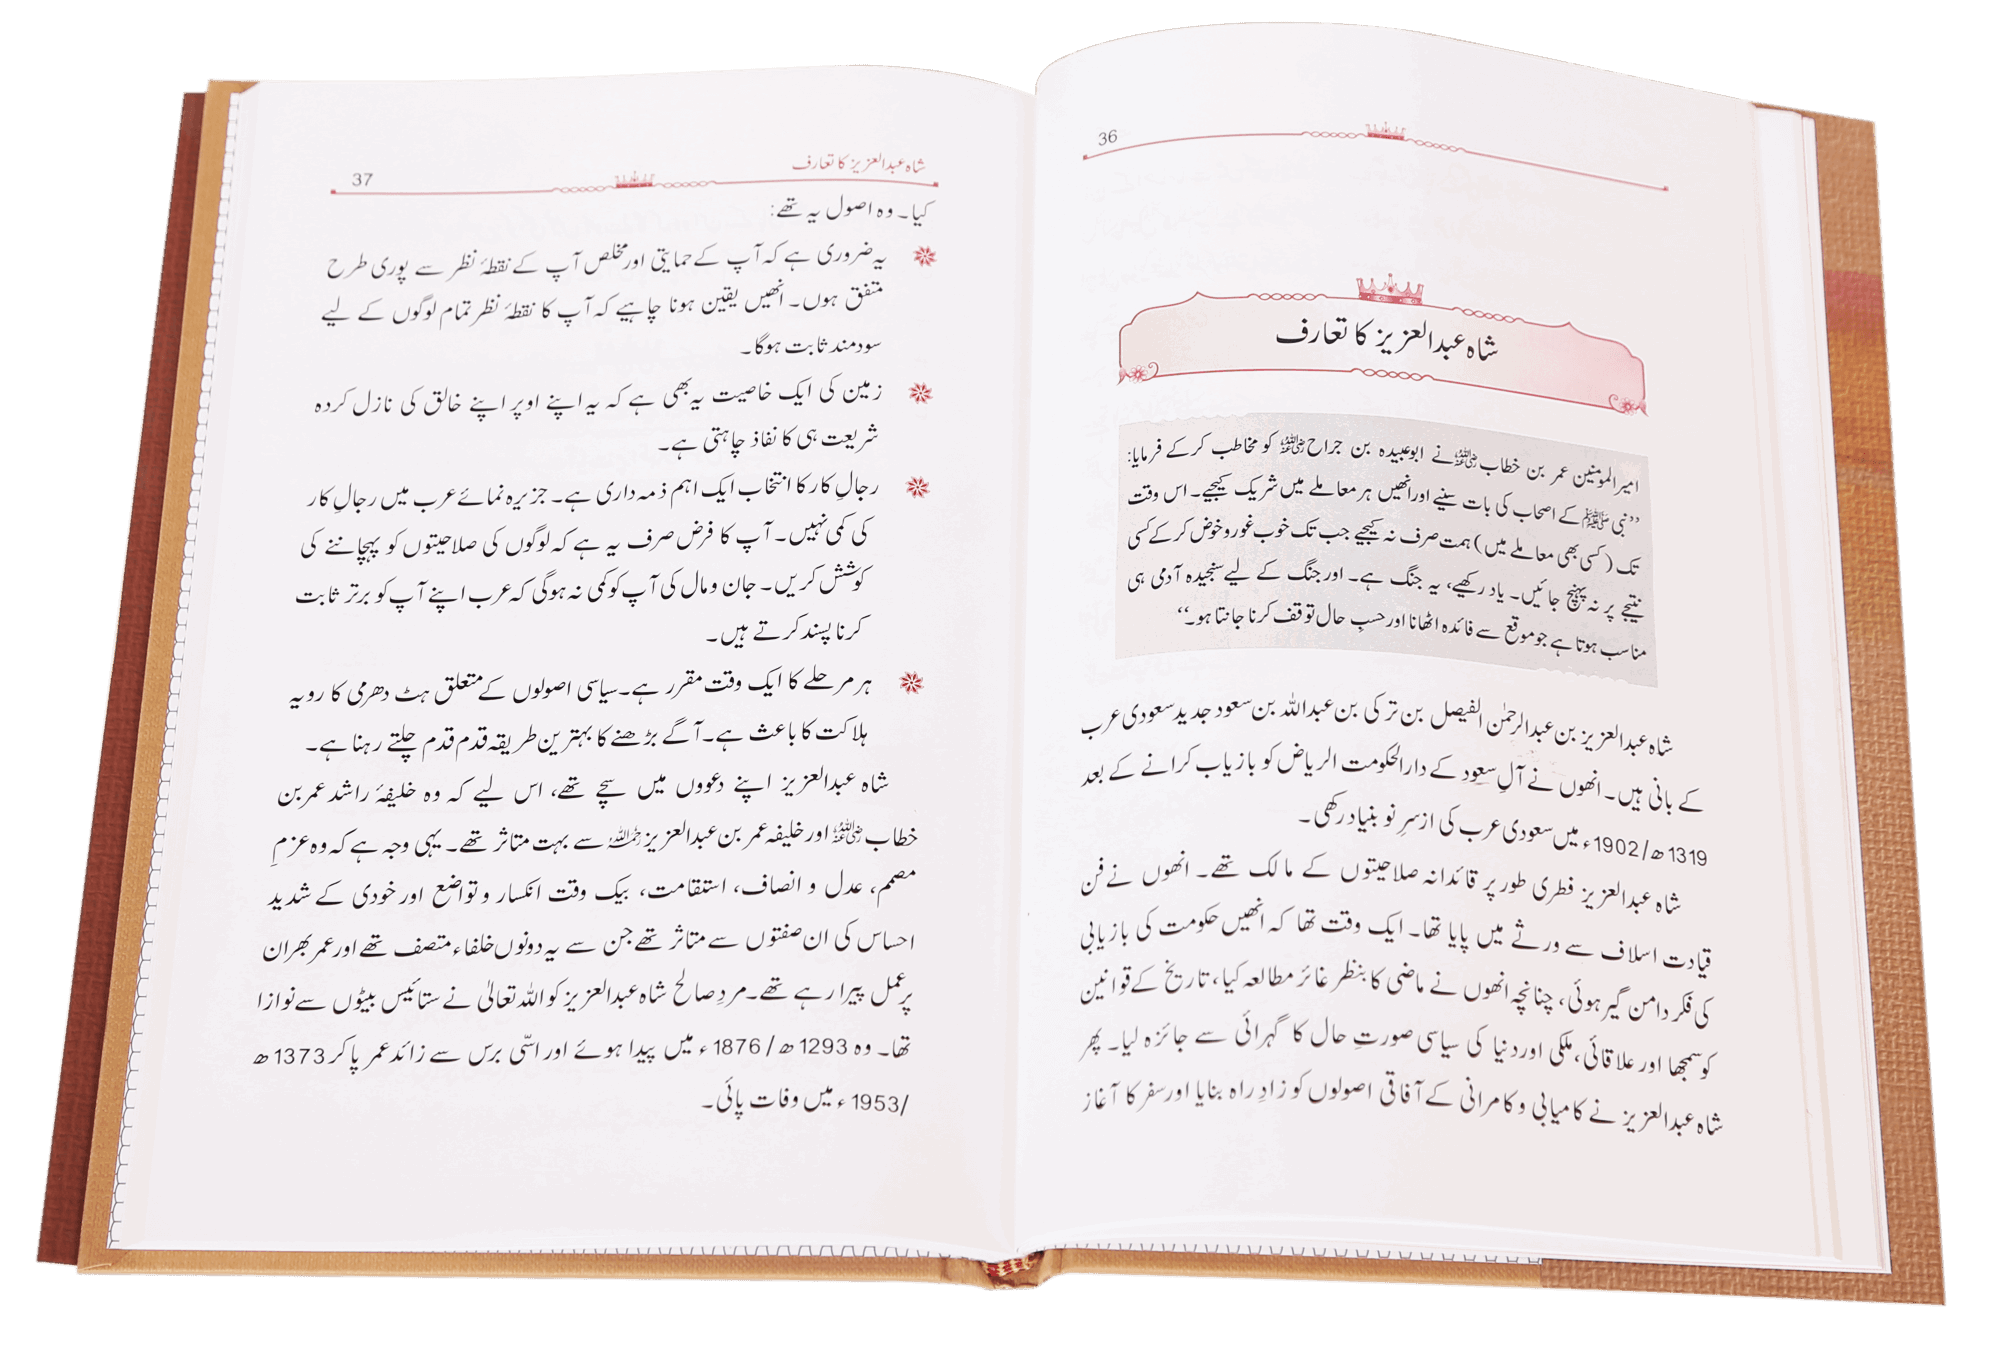 36
شاہ عبدالعزیز کا تعارف
امیرالمومنین عمر بن خطاب رضی اللہ عنہ نے ابوعبیدہ بن جراح رضی اللہ عنہ کو مخاطب کر کے فرمایا:
’’نبی ﷺ کے اصحاب کی بات سنیے اور انھیں ہر معاملے میں شریک کیجیے۔ اس وقت
تک (کسی بھی معاملے میں) ہمت صرف نہ کیجیے جب تک خوب غور و خوض کر کے کسی
نتیجے پر نہ پہنچ جائیں۔ یاد رکھیے، یہ جنگ ہے۔ اور جنگ کے لیے سنجیدہ آدمی ہی
مناسب ہوتا ہے جو موقع سے فائدہ اٹھانا اور حسبِ حال توقف کرنا جانتا ہو۔‘‘
شاہ عبدالعزیز بن عبدالرحمٰن الفیصل بن ترکی بن عبداللہ بن سعود جدید سعودی عرب
کے بانی ہیں۔ انھوں نے آلِ سعود کے دارالحکومت الریاض کو بازیاب کرانے کے بعد
1319ھ/1902ء میں سعودی عرب کی ازسرِ نو بنیاد رکھی۔
شاہ عبدالعزیز فطری طور پر قائدانہ صلاحیتوں کے مالک تھے۔ انھوں نے فن
قیادت اسلاف سے ورثے میں پایا تھا۔ ایک وقت تھا کہ انھیں حکومت کی بازیابی
کی فکر دامن گیر ہوئی، چنانچہ انھوں نے ماضی کا بنظر غائر مطالعہ کیا، تاریخ کے قوانین
کو سمجھا اور علاقائی، ملکی اور دنیا کی سیاسی صورتِ حال کا گہرائی سے جائزہ لیا۔ پھر
شاہ عبدالعزیز نے کامیابی و کامرانی کے آفاقی اصولوں کو زادِ راہ بنایا اور سفر کا آغاز
شاہ عبدالعزیز کا تعارف
37
کیا۔ وہ اصول یہ تھے:
یہ ضروری ہے کہ آپ کے حمایتی اور مخلص آپ کے نقطۂ نظر سے پوری طرح
متفق ہوں۔ انھیں یقین ہونا چاہیے کہ آپ کا نقطۂ نظر تمام لوگوں کے لیے
سودمند ثابت ہوگا۔
زمین کی ایک خاصیت یہ بھی ہے کہ یہ اپنے اوپر اپنے خالق کی نازل کردہ
شریعت ہی کا نفاذ چاہتی ہے۔
رجالِ کار کا انتخاب ایک اہم ذمہ داری ہے۔ جزیرہ نمائے عرب میں رجالِ کار
کی کمی نہیں۔ آپ کا فرض صرف یہ ہے کہ لوگوں کی صلاحیتوں کو پہچاننے کی
کوشش کریں۔ جان و مال کی آپ کو کمی نہ ہوگی کہ عرب اپنے آپ کو برتر ثابت
کرنا پسند کرتے ہیں۔
ہر مرحلے کا ایک وقت مقرر ہے۔ سیاسی اصولوں کے متعلق ہٹ دھرمی کا رویہ
ہلاکت کا باعث ہے۔ آگے بڑھنے کا بہترین طریقہ قدم قدم چلتے رہنا ہے۔
شاہ عبدالعزیز اپنے دعووں میں سچے تھے، اس لیے کہ وہ خلیفۂ راشد عمر بن
خطاب رضی اللہ عنہ اور خلیفہ عمر بن عبدالعزیز رحمہ اللہ سے بہت متاثر تھے۔ یہی وجہ ہے کہ وہ عزمِ
مصمم، عدل و انصاف، استقامت، بیک وقت انکسار و تواضع اور خودی کے شدید
احساس کی ان صفتوں سے متاثر تھے جن سے یہ دونوں خلفاء متصف تھے اور عمر بھر ان
پر عمل پیرا رہے تھے۔ مردِ صالح شاہ عبدالعزیز کو اللہ تعالیٰ نے ستائیس بیٹوں سے نوازا
تھا۔ وہ 1293ھ/1876ء میں پیدا ہوئے اور اسّی برس سے زائد عمر پا کر 1373ھ
/1953ء میں وفات پائی۔